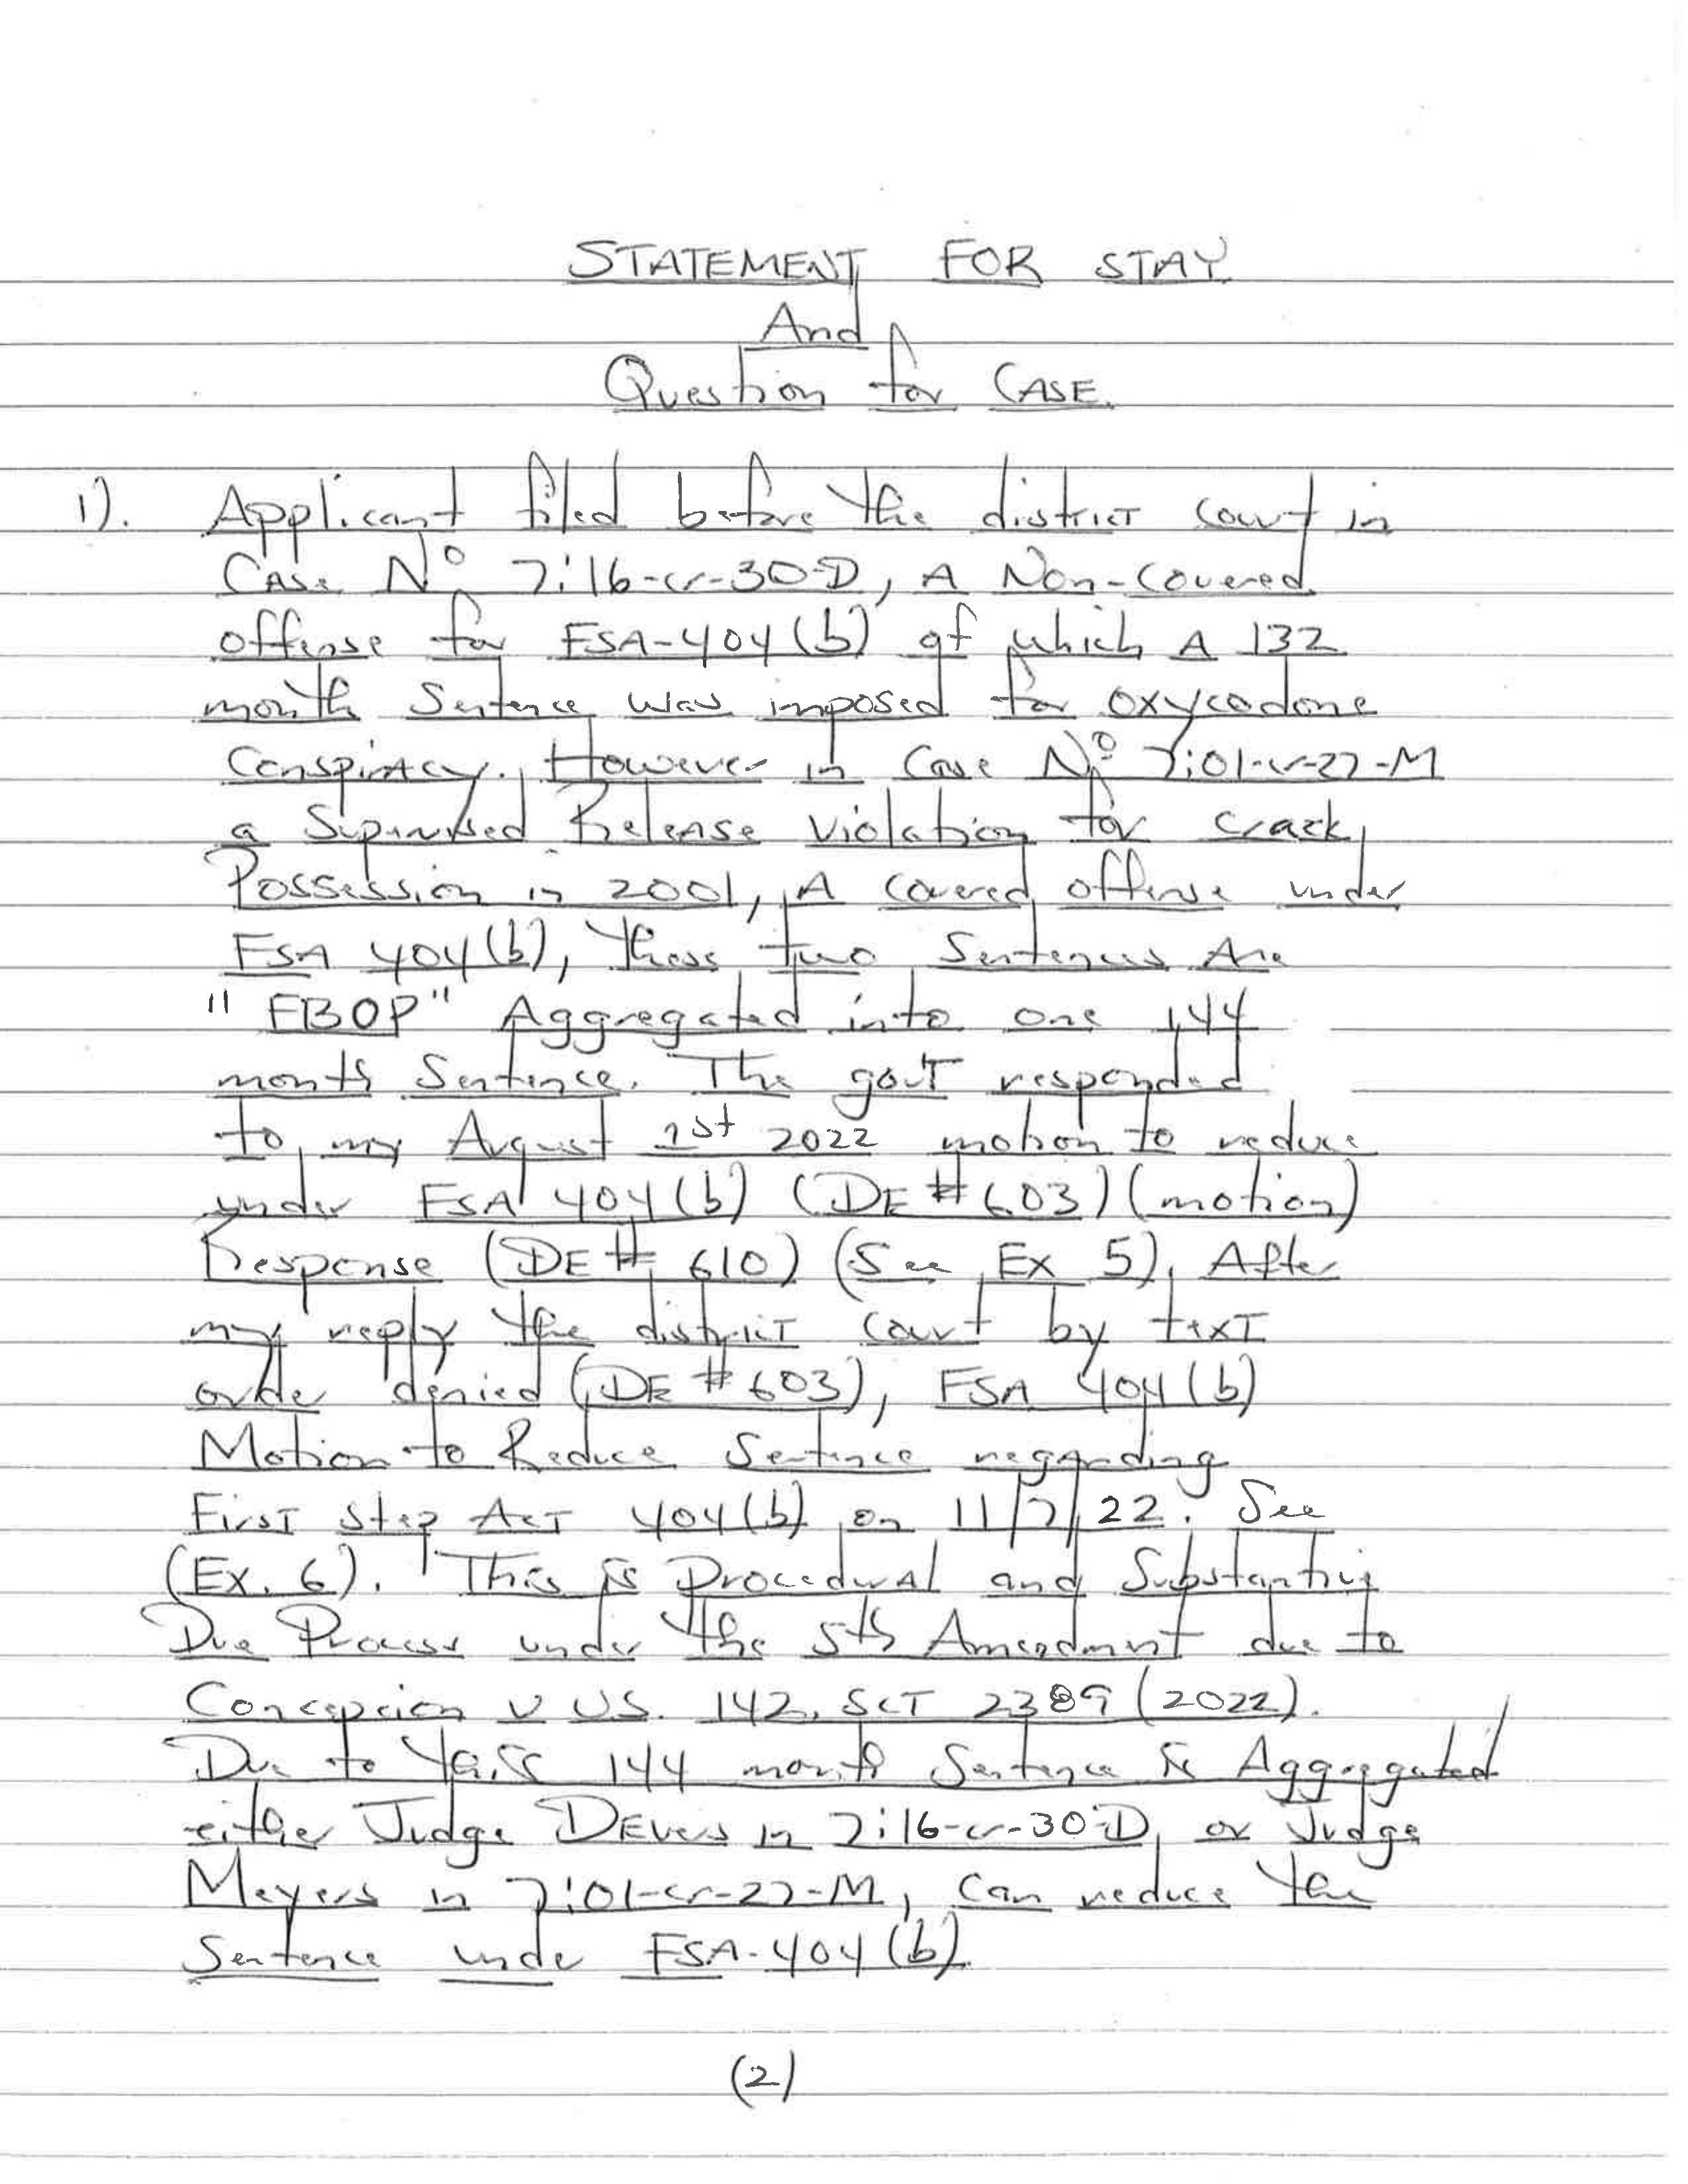 STATEMENT FOR STAY
And
Question for CASE.
1). Applicant filed before the district court in
Case No 7:16-cr-30-D, A Non-Covered
offense for FSA-404(b) of which A 132
month Sentence was imposed for oxycodone
Conspiracy. However in Case No 7:01-cr-27-M
a Supervised Release violation for crack
Possession in 2001, A covered offense under
FSA 404(b), these two Sentences Are
"FBOP" Aggregated into one 144
month Sentence. The gov't responded
to my August 1st 2022 motion to reduce
under FSA 404(b) (DE #603) (motion)
Response (DE # 610) (See Ex 5). After
my reply the district court by text
order denied (DE #603), FSA 404(b)
Motion to Reduce Sentence regarding
First Step Act 404(b) on 11/7/22. See
(Ex. 6). This is Procedural and Substantive
Due Process under the 5th Amendment due to
Concepcion v US. 142, SCT 2389 (2022).
Due to this 144 month Sentence is Aggregated
either Judge DEVers in 7:16-cr-30-D, or Judge
Meyers in 7:01-cr-27-M, can reduce the
Sentence under FSA-404(b)
(2)